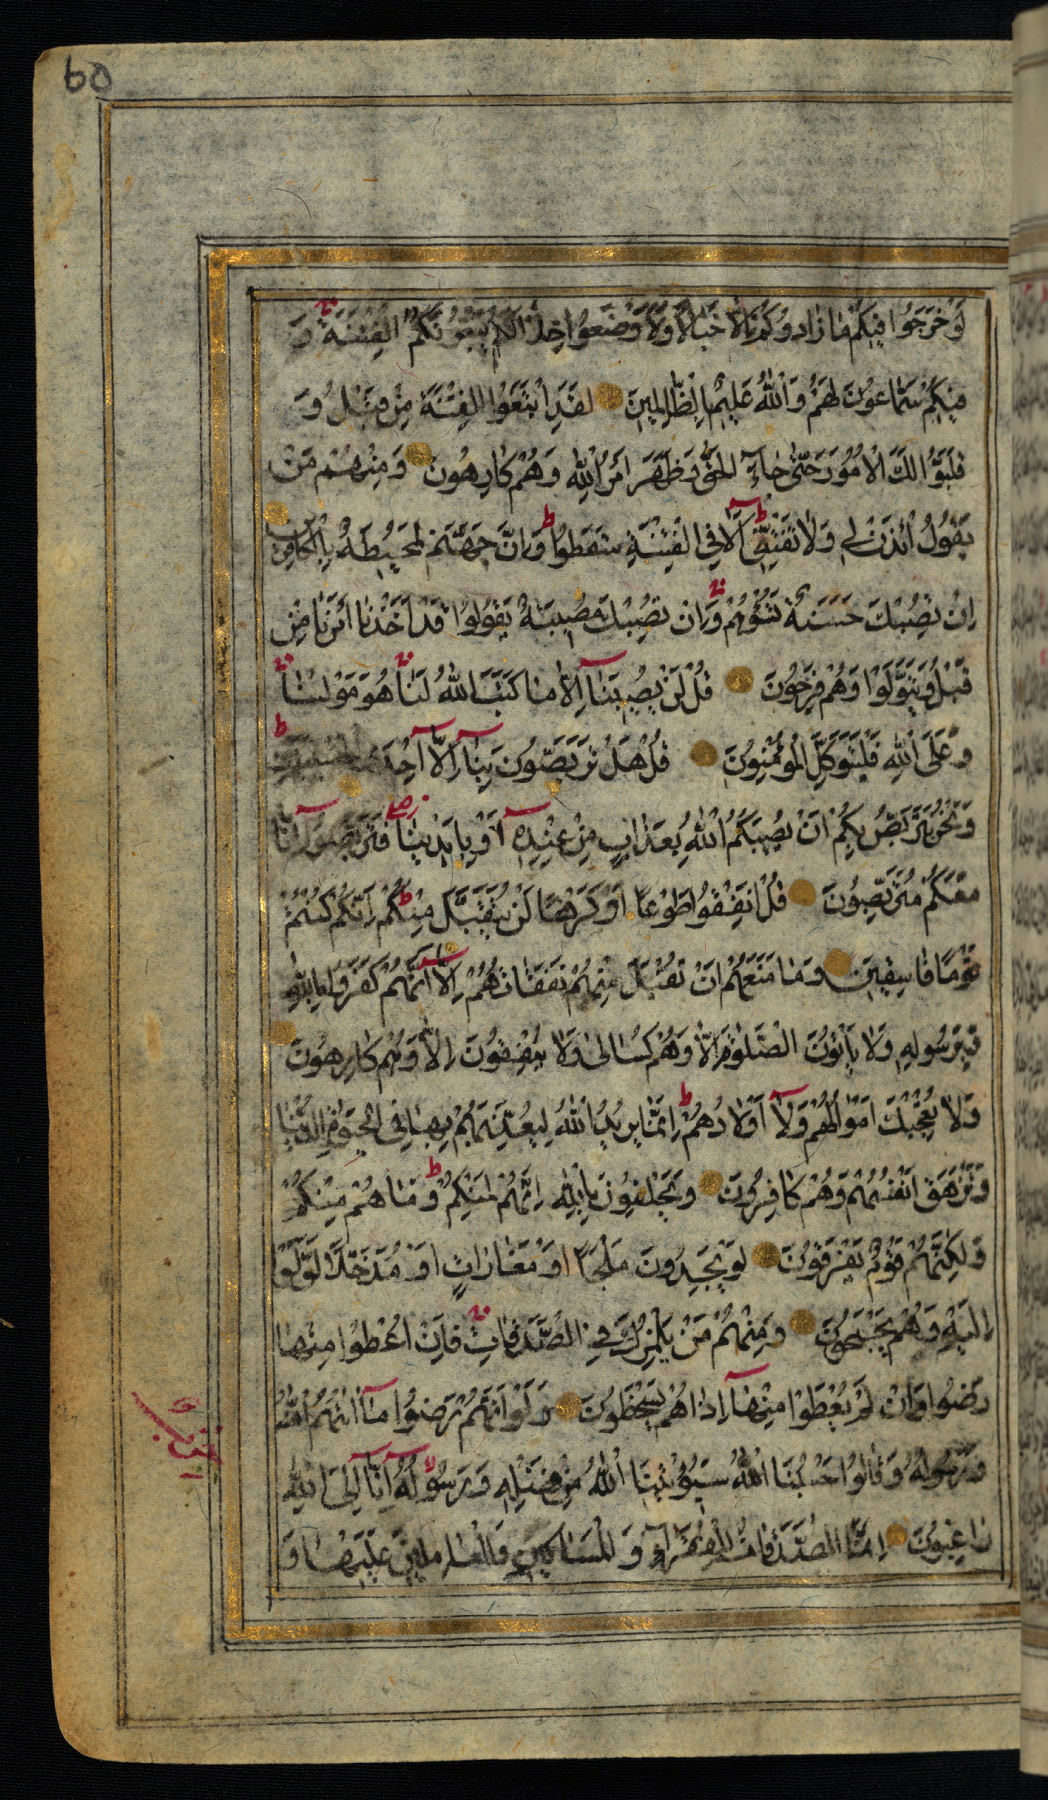 60
لَوْ خَرَجُوا فِيكُمْ مَا زَادُوكُمْ إِلَّا خَبَالًا وَلَأَوْضَعُوا خِلَالَكُمْ يَبْغُونَكُمُ الْفِتْنَةَ وَ
فِيكُمْ سَمَّاعُونَ لَهُمْ وَاللَّهُ عَلِيمٌ بِالظَّالِمِينَ لَقَدِ ابْتَغَوُا الْفِتْنَةَ مِنْ قَبْلُ وَ
قَلَّبُوا لَكَ الْأُمُورَ حَتَّى جَاءَ الْحَقُّ وَظَهَرَ أَمْرُ اللَّهِ وَهُمْ كَارِهُونَ وَمِنْهُمْ مَنْ
يَقُولُ ائْذَنْ لِي وَلَا تَفْتِنِّي أَلَا فِي الْفِتْنَةِ سَقَطُوا وَإِنَّ جَهَنَّمَ لَمُحِيطَةٌ بِالْكَافِرِينَ
إِنْ تُصِبْكَ حَسَنَةٌ تَسُؤْهُمْ وَإِنْ تُصِبْكَ مُصِيبَةٌ يَقُولُوا قَدْ أَخَذْنَا أَمْرَنَا مِنْ
قَبْلُ وَيَتَوَلَّوْا وَهُمْ فَرِحُونَ قُلْ لَنْ يُصِيبَنَا إِلَّا مَا كَتَبَ اللَّهُ لَنَا هُوَ مَوْلَانَا
وَعَلَى اللَّهِ فَلْيَتَوَكَّلِ الْمُؤْمِنُونَ قُلْ هَلْ تَرَبَّصُونَ بِنَا إِلَّا إِحْدَى الْحُسْنَيَيْنِ
وَنَحْنُ نَتَرَبَّصُ بِكُمْ أَنْ يُصِيبَكُمُ اللَّهُ بِعَذَابٍ مِنْ عِنْدِهِ أَوْ بِأَيْدِينَا فَتَرَبَّصُوا إِنَّا
مَعَكُمْ مُتَرَبِّصُونَ قُلْ أَنْفِقُوا طَوْعًا أَوْ كَرْهًا لَنْ يُتَقَبَّلَ مِنْكُمْ إِنَّكُمْ كُنْتُمْ
قَوْمًا فَاسِقِينَ وَمَا مَنَعَهُمْ أَنْ تُقْبَلَ مِنْهُمْ نَفَقَاتُهُمْ إِلَّا أَنَّهُمْ كَفَرُوا بِاللَّهِ
وَبِرَسُولِهِ وَلَا يَأْتُونَ الصَّلَوةَ إِلَّا وَهُمْ كُسَالَى وَلَا يُنْفِقُونَ إِلَّا وَهُمْ كَارِهُونَ
فَلَا تُعْجِبْكَ أَمْوَالُهُمْ وَلَا أَوْلَادُهُمْ إِنَّمَا يُرِيدُ اللَّهُ لِيُعَذِّبَهُمْ بِهَا فِي الْحَيَوةِ الدُّنْيَا
وَتَزْهَقَ أَنْفُسُهُمْ وَهُمْ كَافِرُونَ وَيَحْلِفُونَ بِاللَّهِ إِنَّهُمْ لَمِنْكُمْ وَمَا هُمْ مِنْكُمْ
وَلَكِنَّهُمْ قَوْمٌ يَفْرَقُونَ لَوْ يَجِدُونَ مَلْجَأً أَوْ مَغَارَاتٍ أَوْ مُدَّخَلًا لَوَلَّوْا
إِلَيْهِ وَهُمْ يَجْمَحُونَ وَمِنْهُمْ مَنْ يَلْمِزُكَ فِي الصَّدَقَاتِ فَإِنْ أُعْطُوا مِنْهَا
رَضُوا وَإِنْ لَمْ يُعْطَوْا مِنْهَا إِذَا هُمْ يَسْخَطُونَ وَلَوْ أَنَّهُمْ رَضُوا مَا آتَاهُمُ اللَّهُ
وَرَسُولُهُ وَقَالُوا حَسْبُنَا اللَّهُ سَيُؤْتِينَا اللَّهُ مِنْ فَضْلِهِ وَرَسُولُهُ إِنَّا إِلَى اللَّهِ
رَاغِبُونَ إِنَّمَا الصَّدَقَاتُ لِلْفُقَرَاءِ وَالْمَسَاكِينِ وَالْعَامِلِينَ عَلَيْهَا وَ
حزب